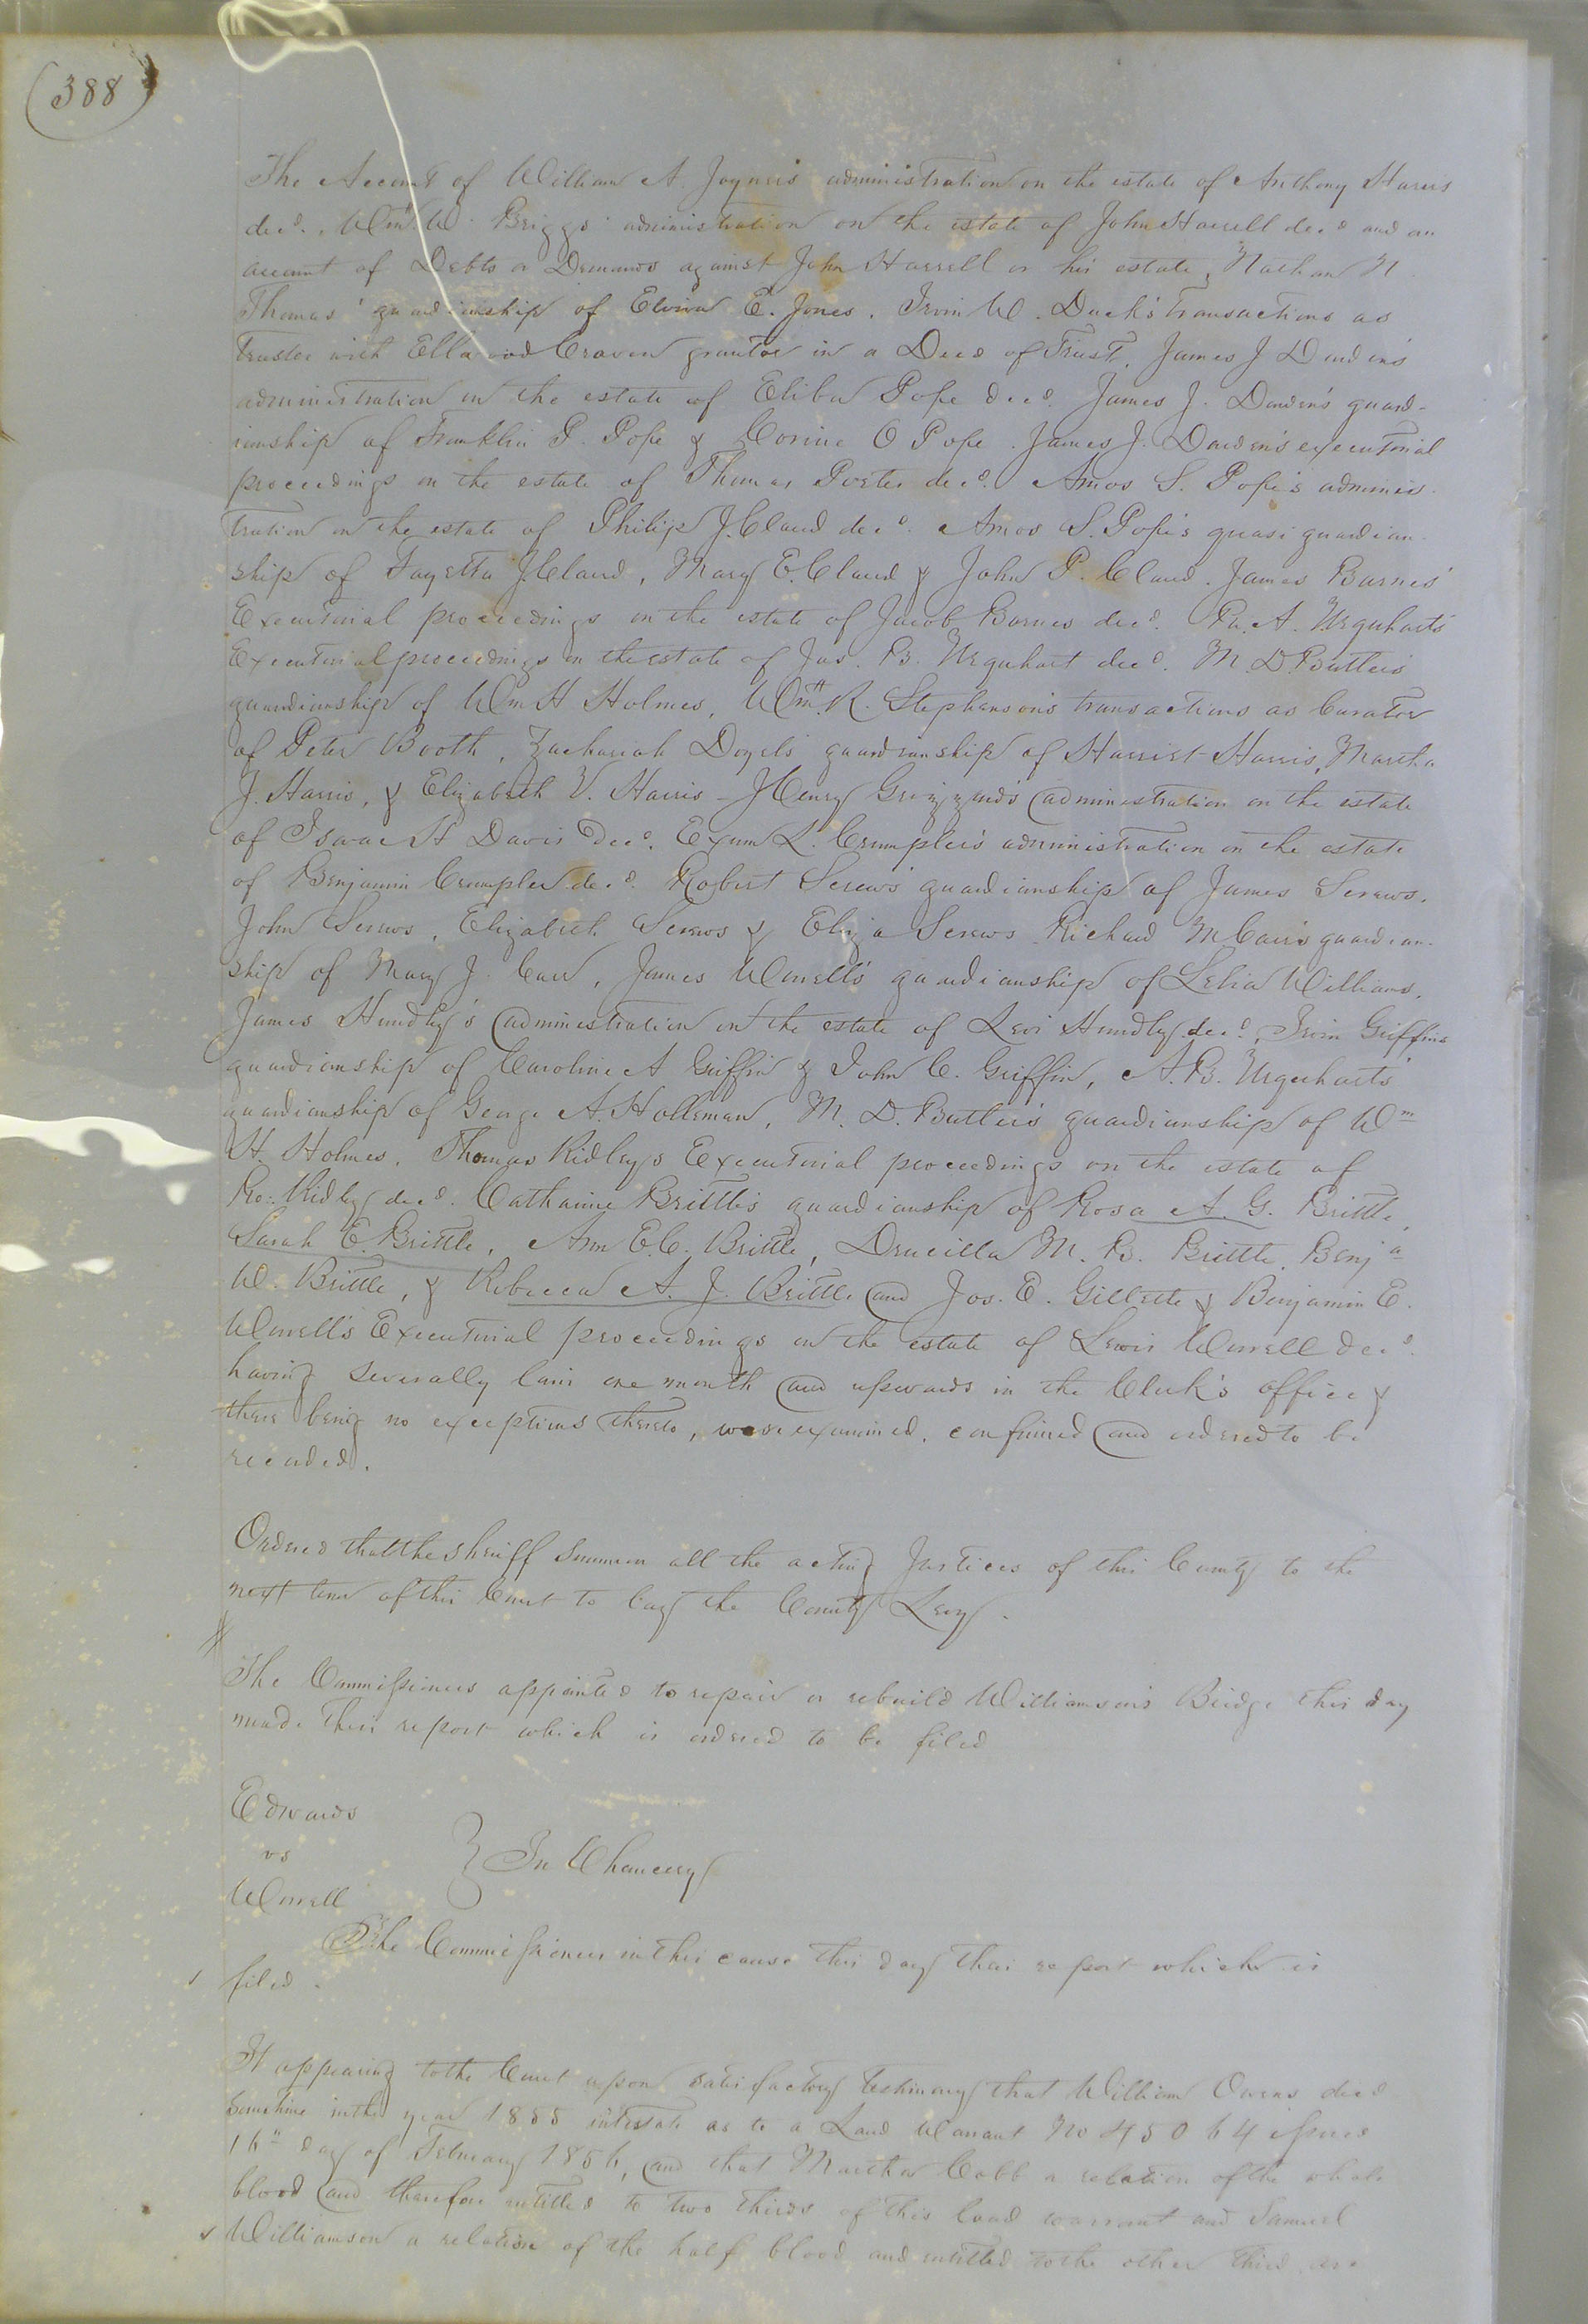 (388)
The Account of William A. Joyner's administration on the estate of Anthony Harris
decd. Wm. W. Briggs' administration on the estate of John Harrell decd and an
account of Debts or Demands against John Harrell or his estate, Nathan N
Thomas' guardianship of Elvira E. Jones. Irvin W. Duck's transactions as
Trustee with Ellwood Craven grantor in a Deed of Trust, James J Darden's
administration on the estate of Elibu Pope decd. James J. Darden's guard-
ianship of Franklin P. Pope & Corine O Pope. James J. Darden's executorial
proceedings on the estate of Thomas Porter decd. Amos S. Pope's adminis-
tration on the estate of Philip J. Claud decd. Amos S. Pope's quasi guardian-
ship of Fayetta J Claud, Mary E. Claud & John P. Claud. James Barnes'
Executorial proceedings on the estate of Jacob Barnes decd. Ro. A. Urquhart's
Executorial proceedings on the estate of Jas. B. Urquhart decd. M D. Butler's
guardianship of Wm H Holmes, Wm. R. Stephenson's transactions as Curator
of Peter Booth, Zachariah Doyel's guardianship of Harriet Harris, Martha
J. Harris, & Elizabeth V. Harris - Henry Grizzard's administration on the estate
of Isaac H Davis Decd. Exum L. Crumpler's administration on the estate
of Benjamin Crumpler decd. Robert Screws' guardianship of James Screws.
John Screws, Elizabeth Screws & Eliza Screws Richard M Carr's guardian-
ship of Mary J. Carr, James Worrell's guardianship of Lelia Williams.
James Hundley's administration on the estate of Levi Hundley decd, Irvin Griffins
guardianship of Caroline A Griffin & John C. Griffin, A. B. Urquhart's
guardianship of George A. Holleman, M. D. Butler's guardianship of Wm
H. Holmes. Thomas Ridley's Executorial proceedings on the estate of
Ro: Ridley decd. Catharine Brittle's guardianship of Rosa A. G. Brittle,
Sarah E. Brittle, Ann E. C. Brittle, Drucilla M. B. Brittle, Benja
W. Brittle, & Rebecca A. J. Brittle and Jos. E. Gillette & Benjamin E.
Worrell's Executorial proceedings on the estate of Lewis Worrell Decd.
having severally lain one month and upwards in the Clerk's office &
there being no exceptions thereto, were examined, confirmed and ordered to be
recorded.
Ordered that the sheriff summon all the acting Justices of this County to the
next term of this Court to lay the County Levy.
The Commissioners appointed to repair or rebuild Williamson's Bridge this day
made their report which is ordered to be filed
Edwards
vs } In Chancery
Worrell
The Commissioners in this cause this day their report which is
filed.
It appearing to the Court upon satisfactory testimony that William Owens died
sometime in the year 1855 intestate as to a Land Warrant No 45064 issued
16th day of February 1856, and that Martha Cobb a relation of the whole
blood and therefore entitled to two thirds of this land warrant and Samuel
Williamson a relation of the half blood and entitled to the other third are